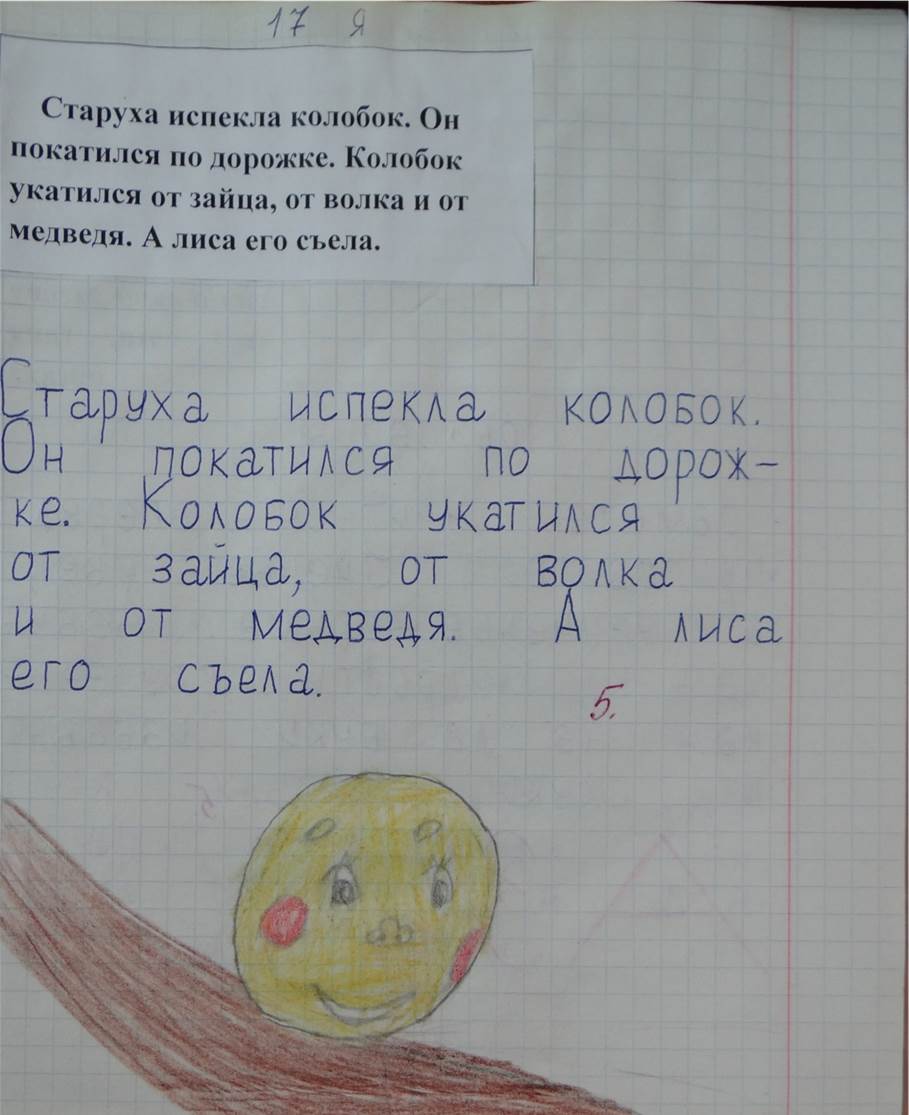 17 я
Старуха испекла колобок. Он
покатился по дорожке. Колобок
укатился от зайца, от волка и от
медведя. А лиса его съела.
Старуха испекла колобок.
Он покатился по дорож-
ке. Колобок укатился
от зайца, от волка
и от медведя. А лиса
его съела.
5.